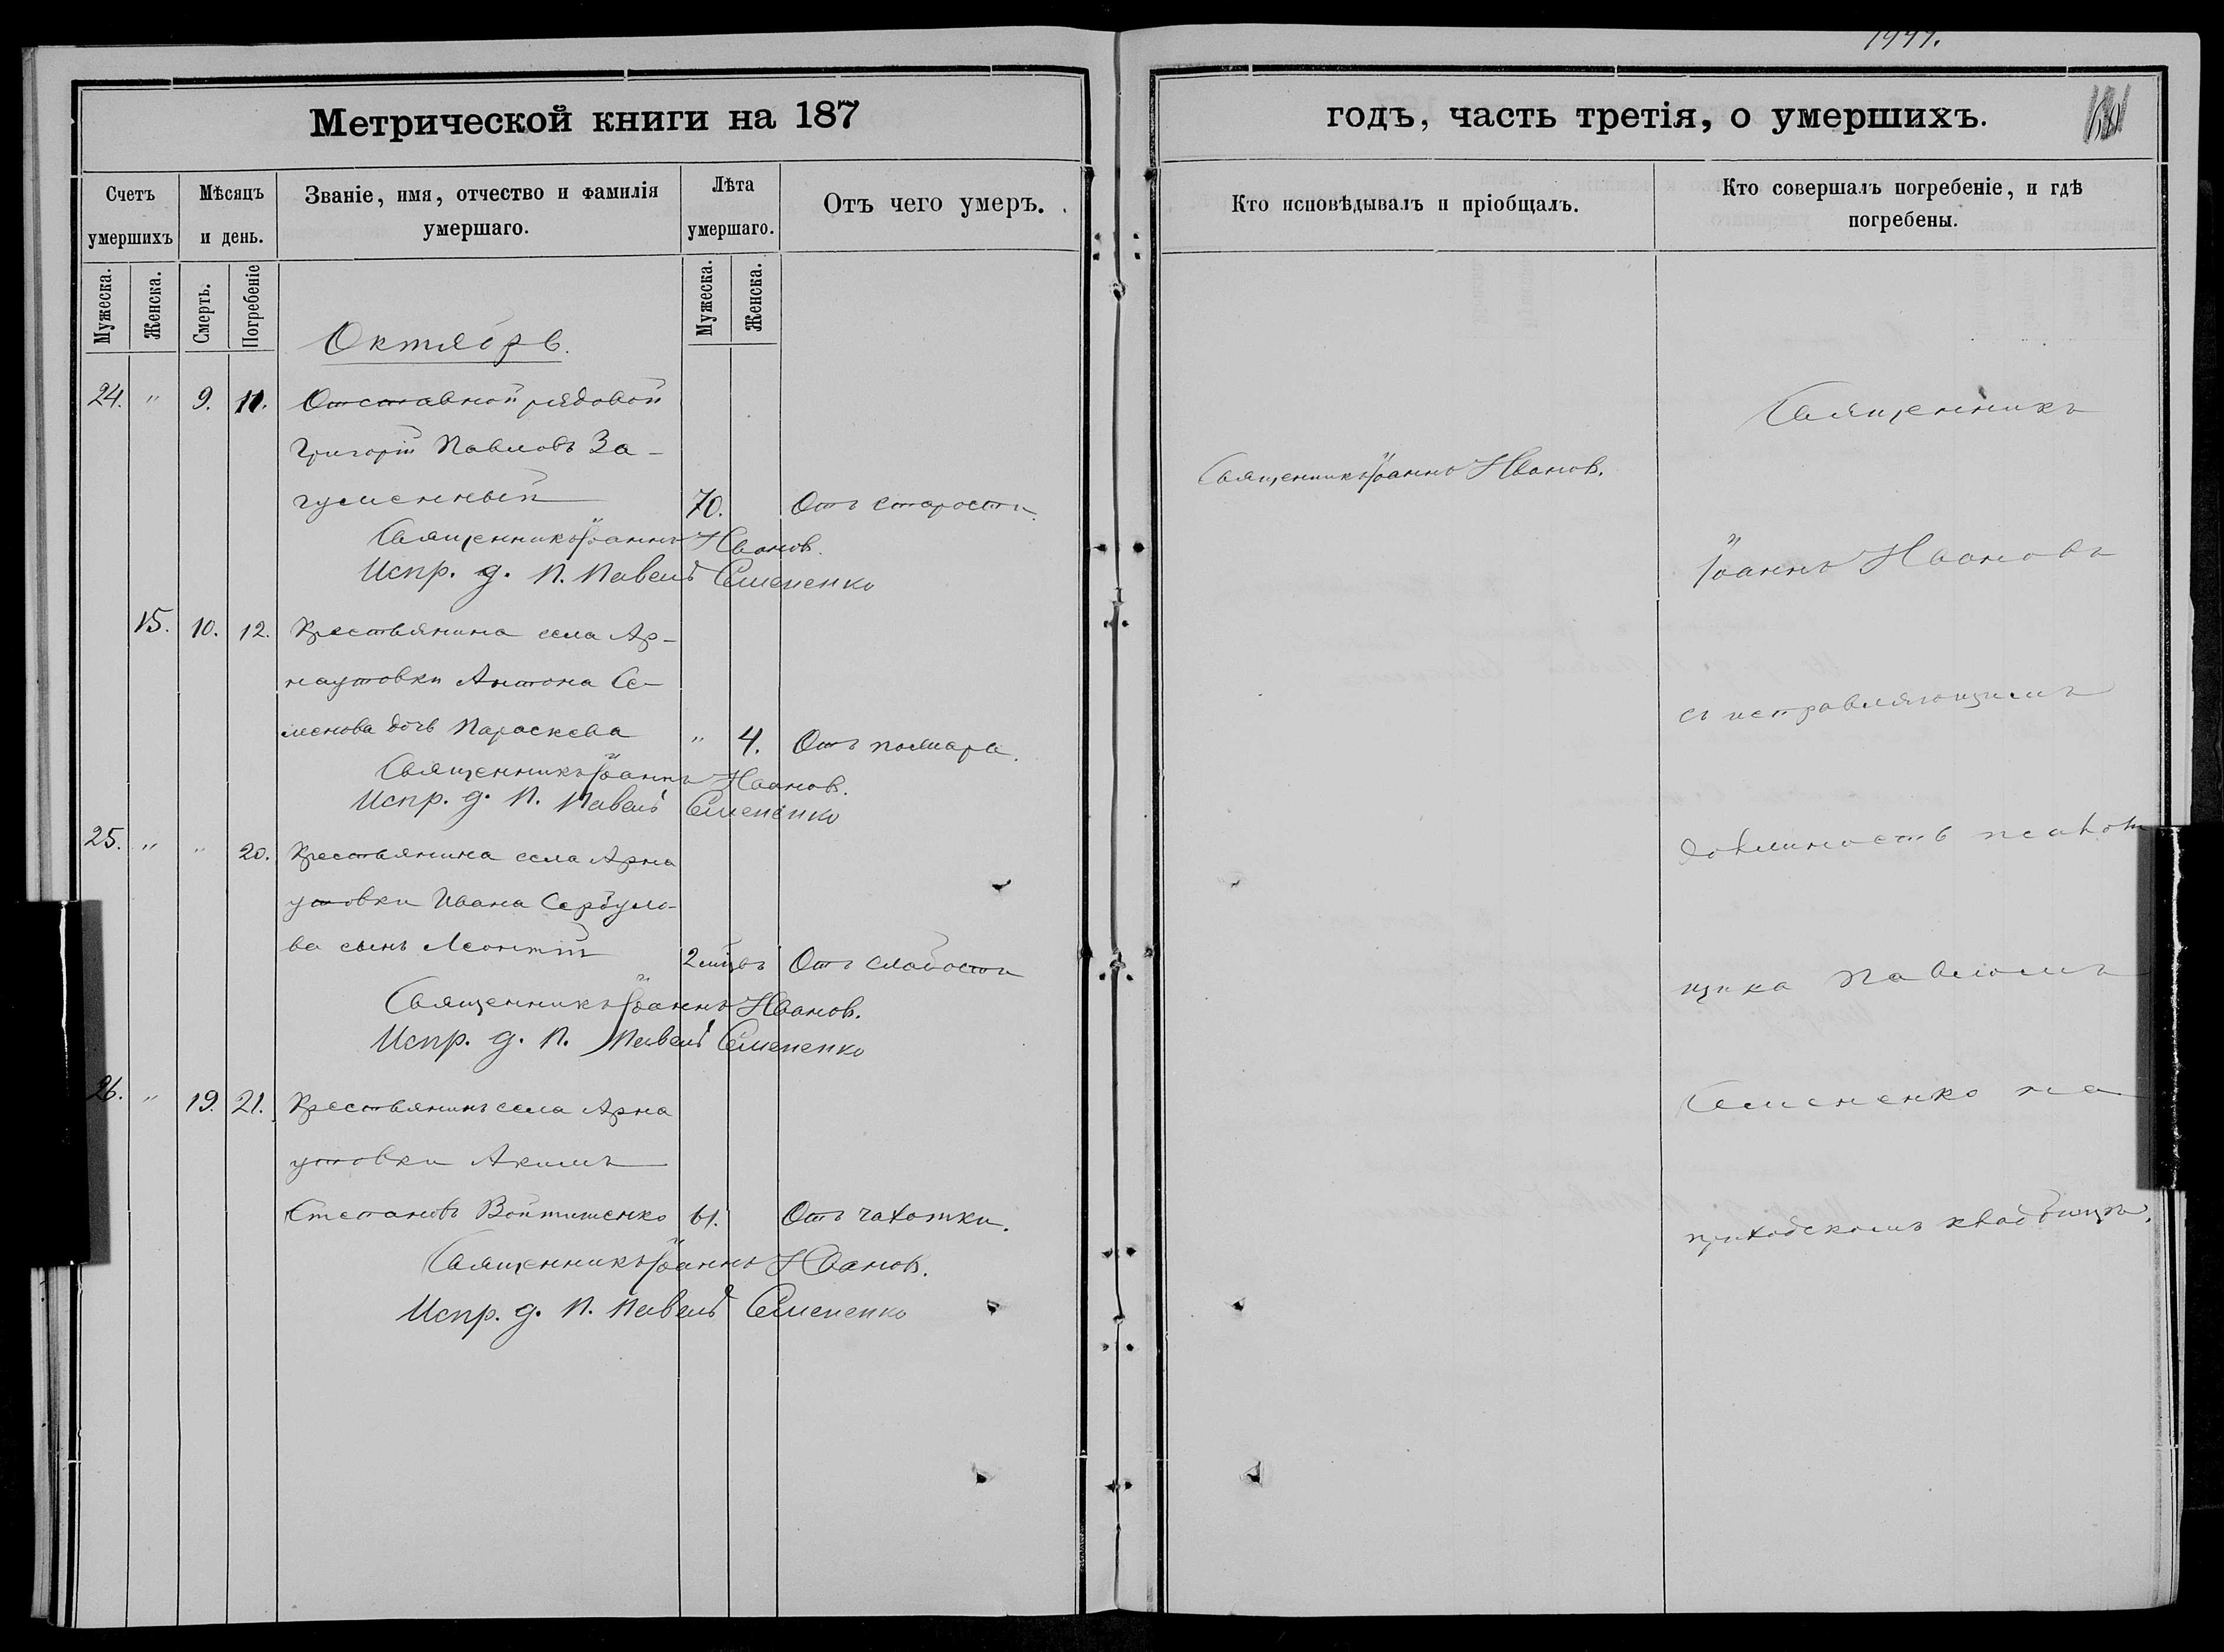 Метрической книги на 187
Счетъ умершихъ
Мѣсяцъ и день.
Званіе, имя, отчество и фамилія умершаго.
Лѣта умершаго.
Отъ чего умеръ.
Мужеска.
Женска.
Смерть.
Погребеніе
Мужеска.
Женска.
Октябрь.
24. " 9. 11. Отставной рядовой
Григорій Павловъ За-
гуменный 70. Отъ старости.
Священникъ Іоаннъ Иванов.
Испр. д. П. Павелъ Семененко
15. 10. 12. Крестьянина села Ар-
наутовки Антона Се-
менова дочь Параскева " 4. Отъ
Священникъ Іоаннъ Иванов.
Испр. д. П. Павелъ Семененко
25. " " 20. Крестьянина села Арна
утовки Ивана Сербуло-
ва сынъ Леонтій 2 Отъ слабости
Священникъ Іоаннъ Иванов.
Испр. д. П. Павелъ Семененко
26. " 19. 21. Крестьянинъ села Арна
утовки Акимъ
Степановъ Войтишенко 61. Отъ чахотки.
Священникъ Іоаннъ Иванов.
Испр. д. П. Павелъ Семененко
годъ, часть третія, о умершихъ.
Кто исповѣдывалъ и пріобщалъ.
Кто совершалъ погребеніе, и гдѣ погребены.
Священникъ Іоаннъ Иванов.
Священникъ
Іоаннъ Ивановъ
съ исправляющимъ
должность псалом
щика Павломъ
Семененко на
приходскомъ кладбищѣ.